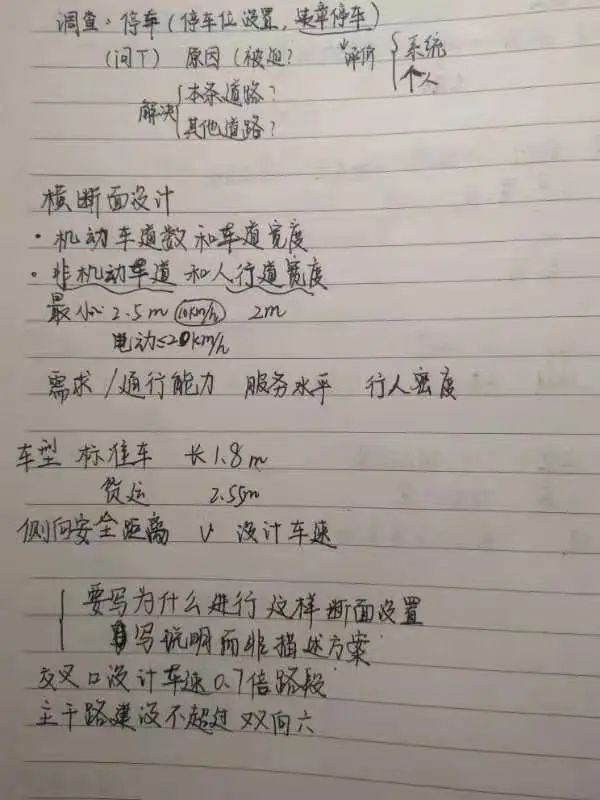 调查·停车(停车位设置,违章停车)
(问T) 原因(被迫? 评价{系统
个人
解决{本条道路?
其他道路?
横断面设计
·机动车道数和车道宽度
·非机动车道 和人行道宽度
最小 2.5m (10km/h) 2m
电动≤20km/h
需求/通行能力 服务水平 行人密度
车型 标准车 长1.8m
货运 2.55m
侧向安全距离 V 设计车速
{要写为什么进行这样断面设置
写说明而非描述方案
交叉口设计车速0.7倍路段
主干路建设不超过双向六